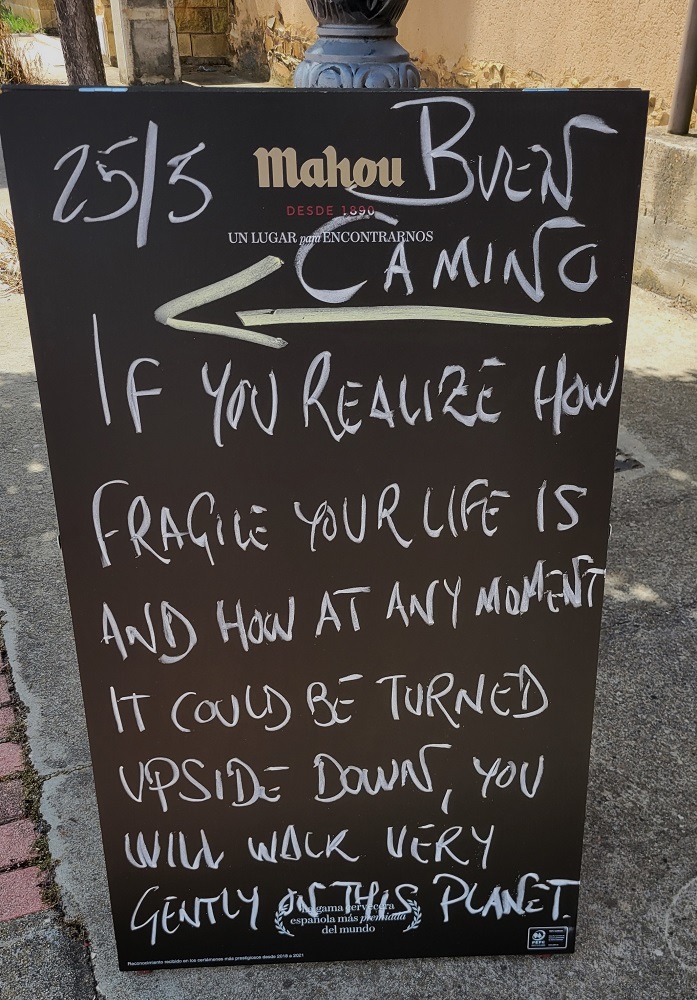 25/5 Mahou BUEN
DESDE 1890
UN LUGAR para ENCONTRARNOS
CAMINO
IF YOU REALIZE HOW
FRAGILE YOUR LIFE IS
AND HOW AT ANY MOMENT
IT COULD BE TURNED
UPSIDE DOWN, YOU
WILL WALK VERY
GENTLY ON THIS PLANET.
la gama cervecera
española más premiada
del mundo
PEFC
Reconocimiento recibido en los certámenes más prestigiosos desde 2018 a 2021